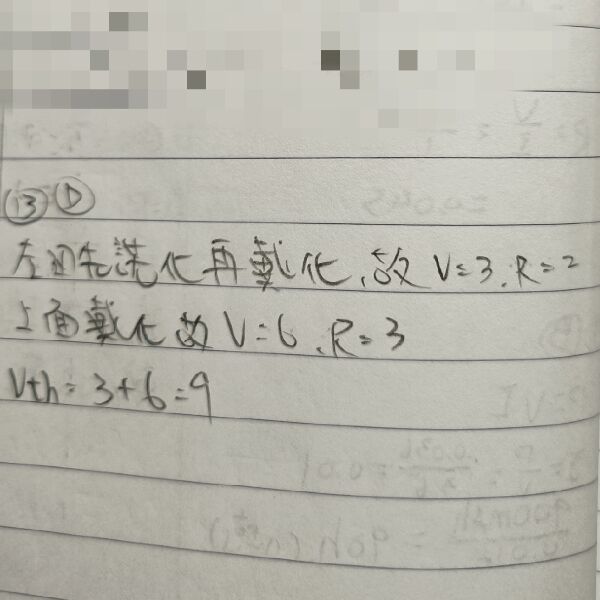 ⑬ Ⓓ
左迴先諾化再戴化，故 V=3，R=2
上面戴化故 V=6，R=3
Vth=3+6=9